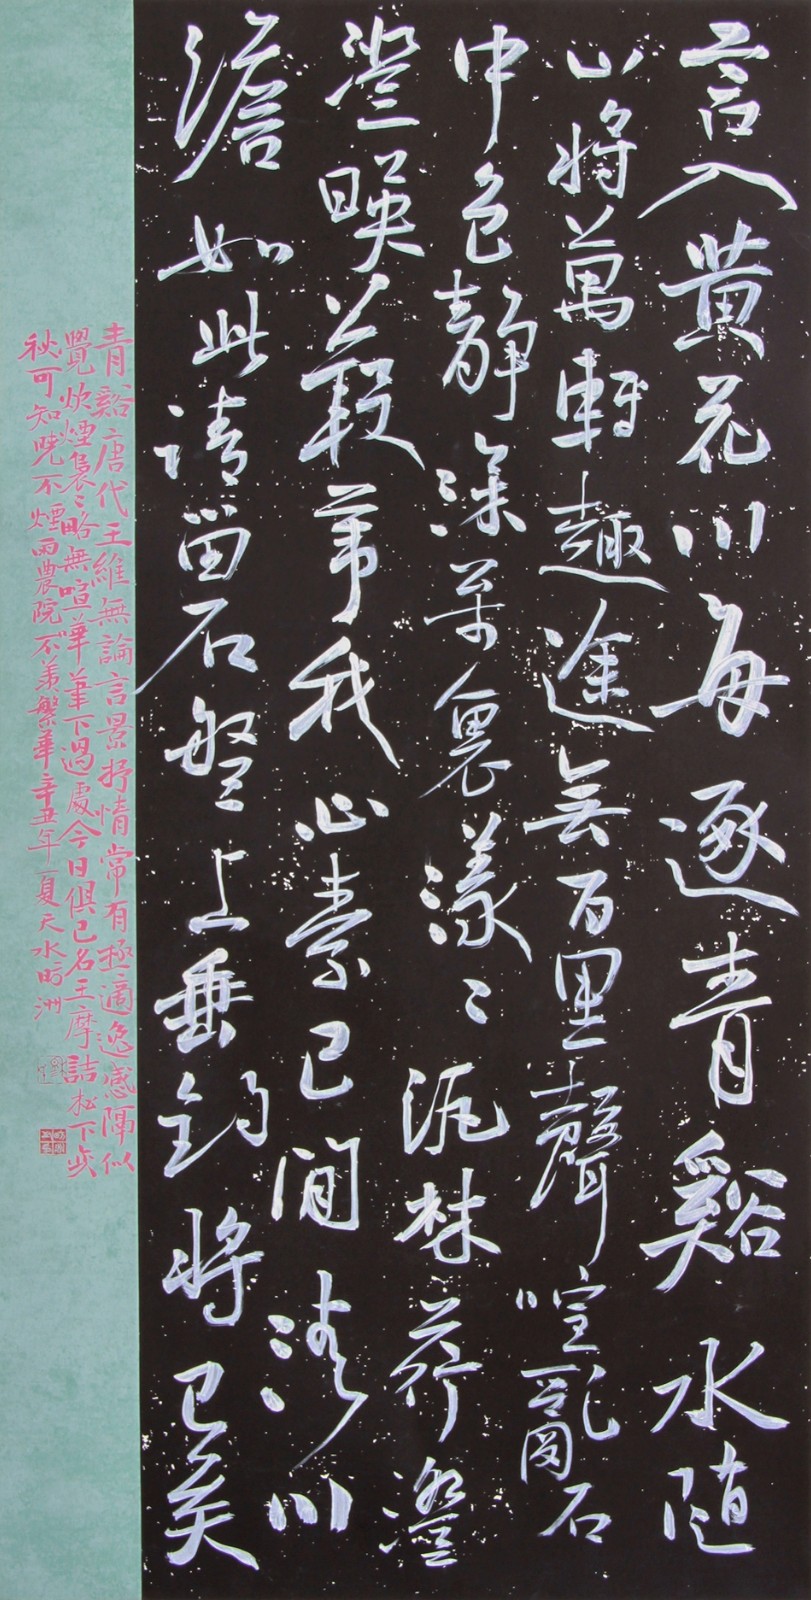 言入黄花川每逐青谿水随
山將萬轉趣途無百里聲喧亂石
中色静深松裏漾〻汎菱荇澄
澄暎葭葦我心素已閒清川
澹如此請留石盤上垂釣將已矣
青谿唐代王維無論言景抒情常有極適逸感隔似
覺炊煙裊〻略無喧華華下過處今日俱已名王摩詰松下
秋可知晚不煙雨農院不羨繁華辛丑年夏天水